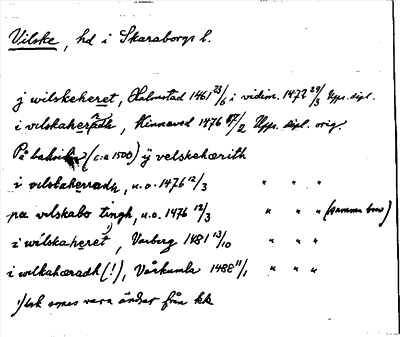 Vilske, hd i Skaraborgs l.
j wilskeheret, Halmstad 1461 23/6 i vidim. 1472 29/3 Upps. dipl.
i vilskaheradh, Kinneved 1476 27/2 Upps. dipl. orig.
På baksidan (c:a 1500) ÿ velskahærith
i vilskaherradh, u.o. 1476 12/3 " " "
pa vilskabo tingh, u.o. 1476 12/3 " " " (samma brev)
i wilskaheret 1), Varberg 1481 13/10 " " "
i wilkahæradh (!), Vårkumla 1488 11/1 " " "
1) sk synes vara ändrat från kk